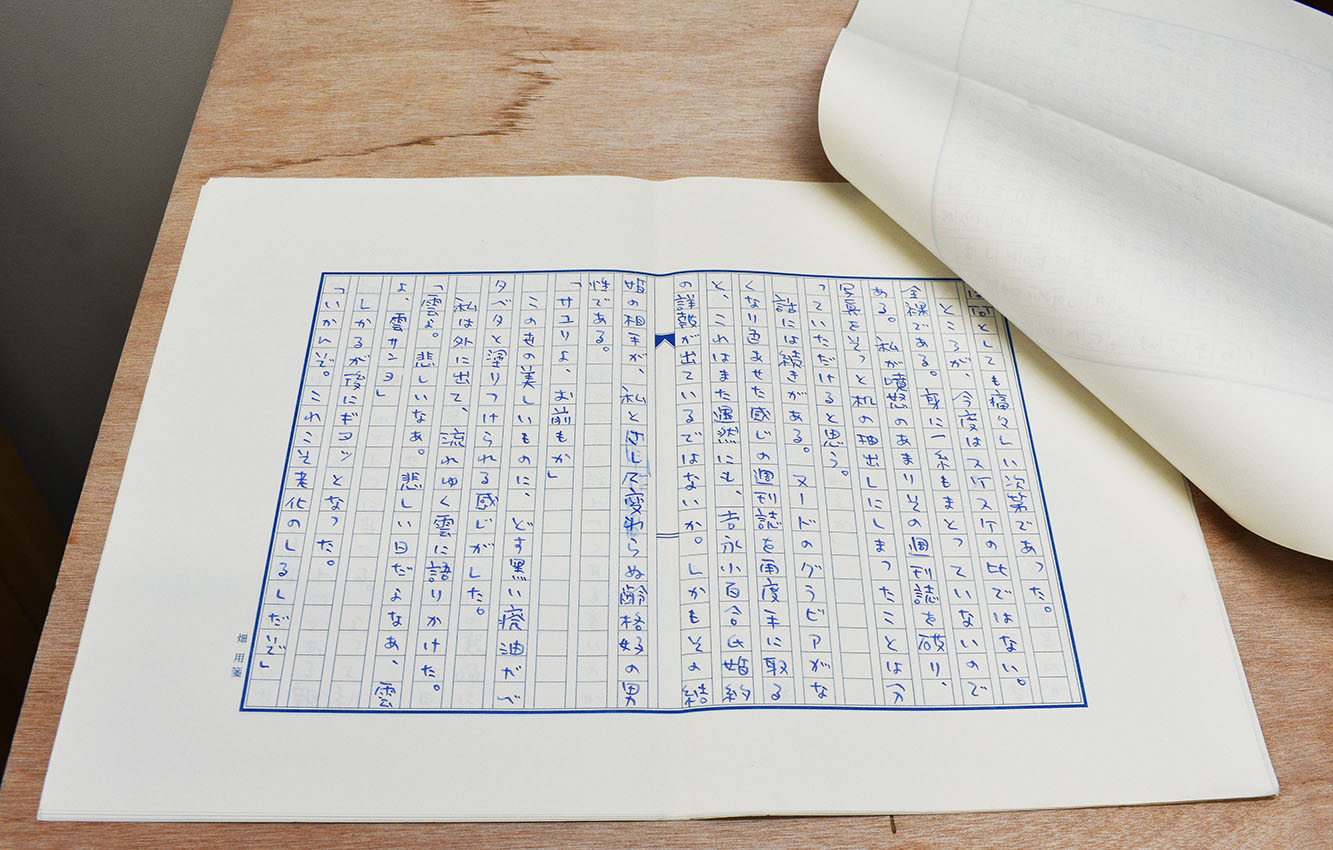 としても痛々しい次第であった。
ところが、今度はスケスケの比ではない。
全裸である。身に一糸もまとっていないので
ある。私が憤怒のあまりその週刊誌を破り、
写真をそっと机の抽出しにしまったことは分
っていただけると思う。
話には続きがある。ヌードのグラビアがな
くなり色あせた感じの週刊誌を再度手に取る
と、これはまた偶然にも、吉永小百合氏婚約
の詳報が出ているではないか。しかもその結
婚の相手が、私とさして変わらぬ齢格好の男
性である。
「サユリよ、お前もか」
この世の美しいものに、どす黒い廃油がべ
タベタと塗りつけられる感じがした。
私は外に出て、流れゆく雲に語りかけた。
「雲よ。悲しいなあ。悲しい日だよなあ、雲
よ、雲サンヨ」
しかるが後にギョッとなった。
「いかんぞ。これこそ老化のしるしだぞ」
畑用箋